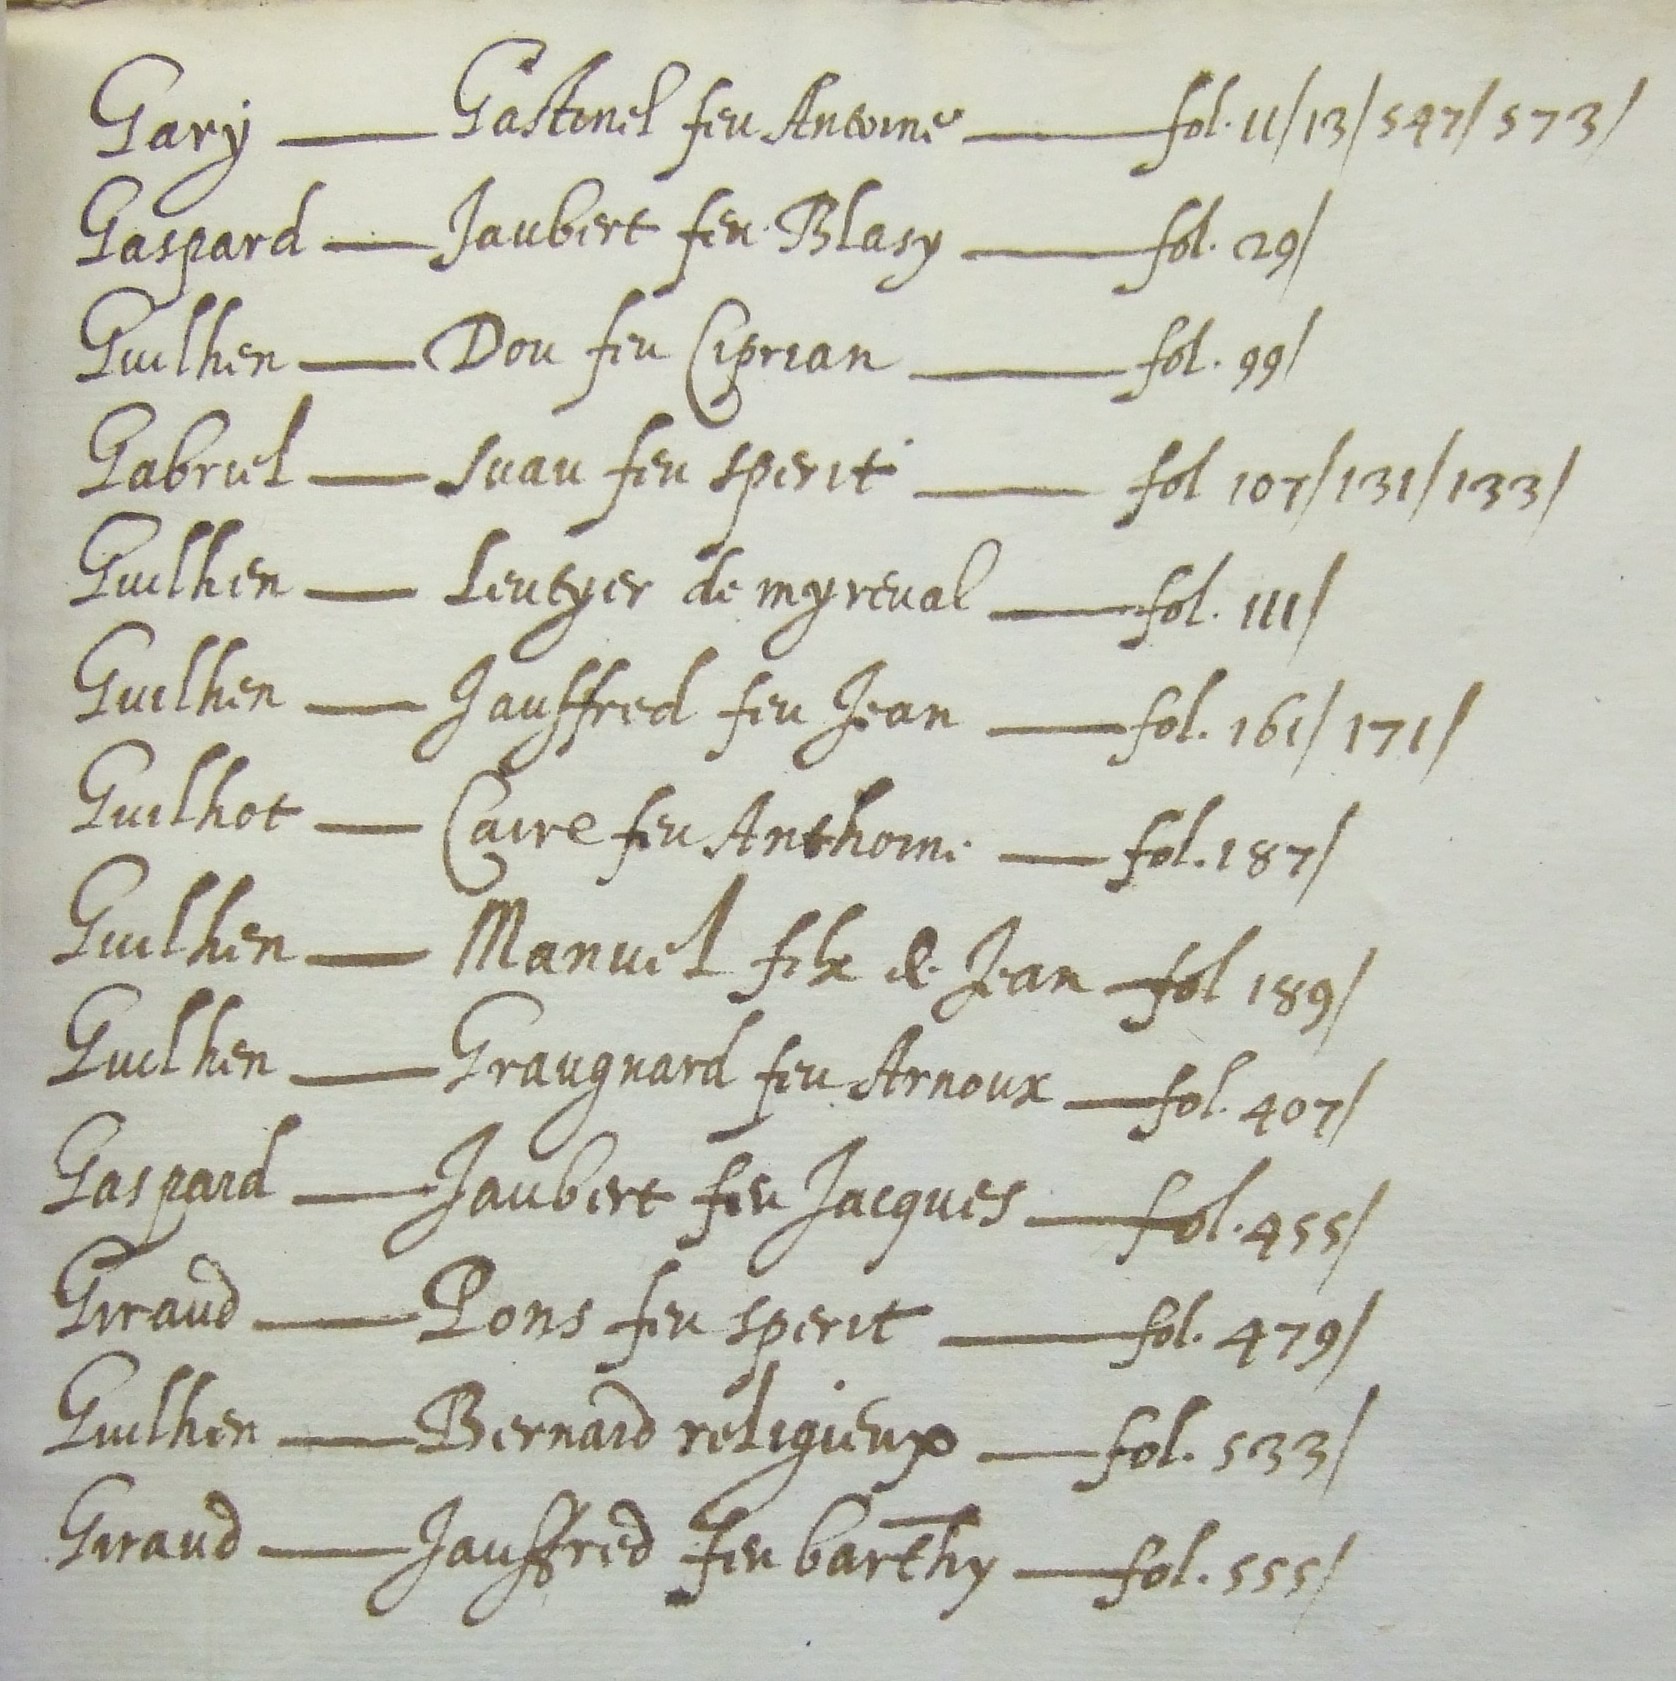 Gary — Gastinel feu Antoine — fol. 11/ 13/ 547/ 573/
Gaspard — Jaubert feu Blasy — fol. 29/
Guilhen — Dou feu Ciprian — fol. 99/
Gabriel — Suau feu sperit — fol 107/ 131/ 133/
Guilhen — Leutyer de myreual — fol. 111/
Guilhen — Jauffred feu Jean — fol. 161/ 171/
Guilhot — Caire feu Anthoine — fol. 187/
Guilhen — Manuel filx de Jean — fol 189/
Guilhen — Graugnard feu Arnoux — fol. 407/
Gaspard — Jaubert feu Jacques — fol. 455/
Giraud — Pons feu sperit — fol. 479/
Guilhen — Bernard religieux — fol. 533/
Giraud — Jauffred feu barthy — fol. 555/